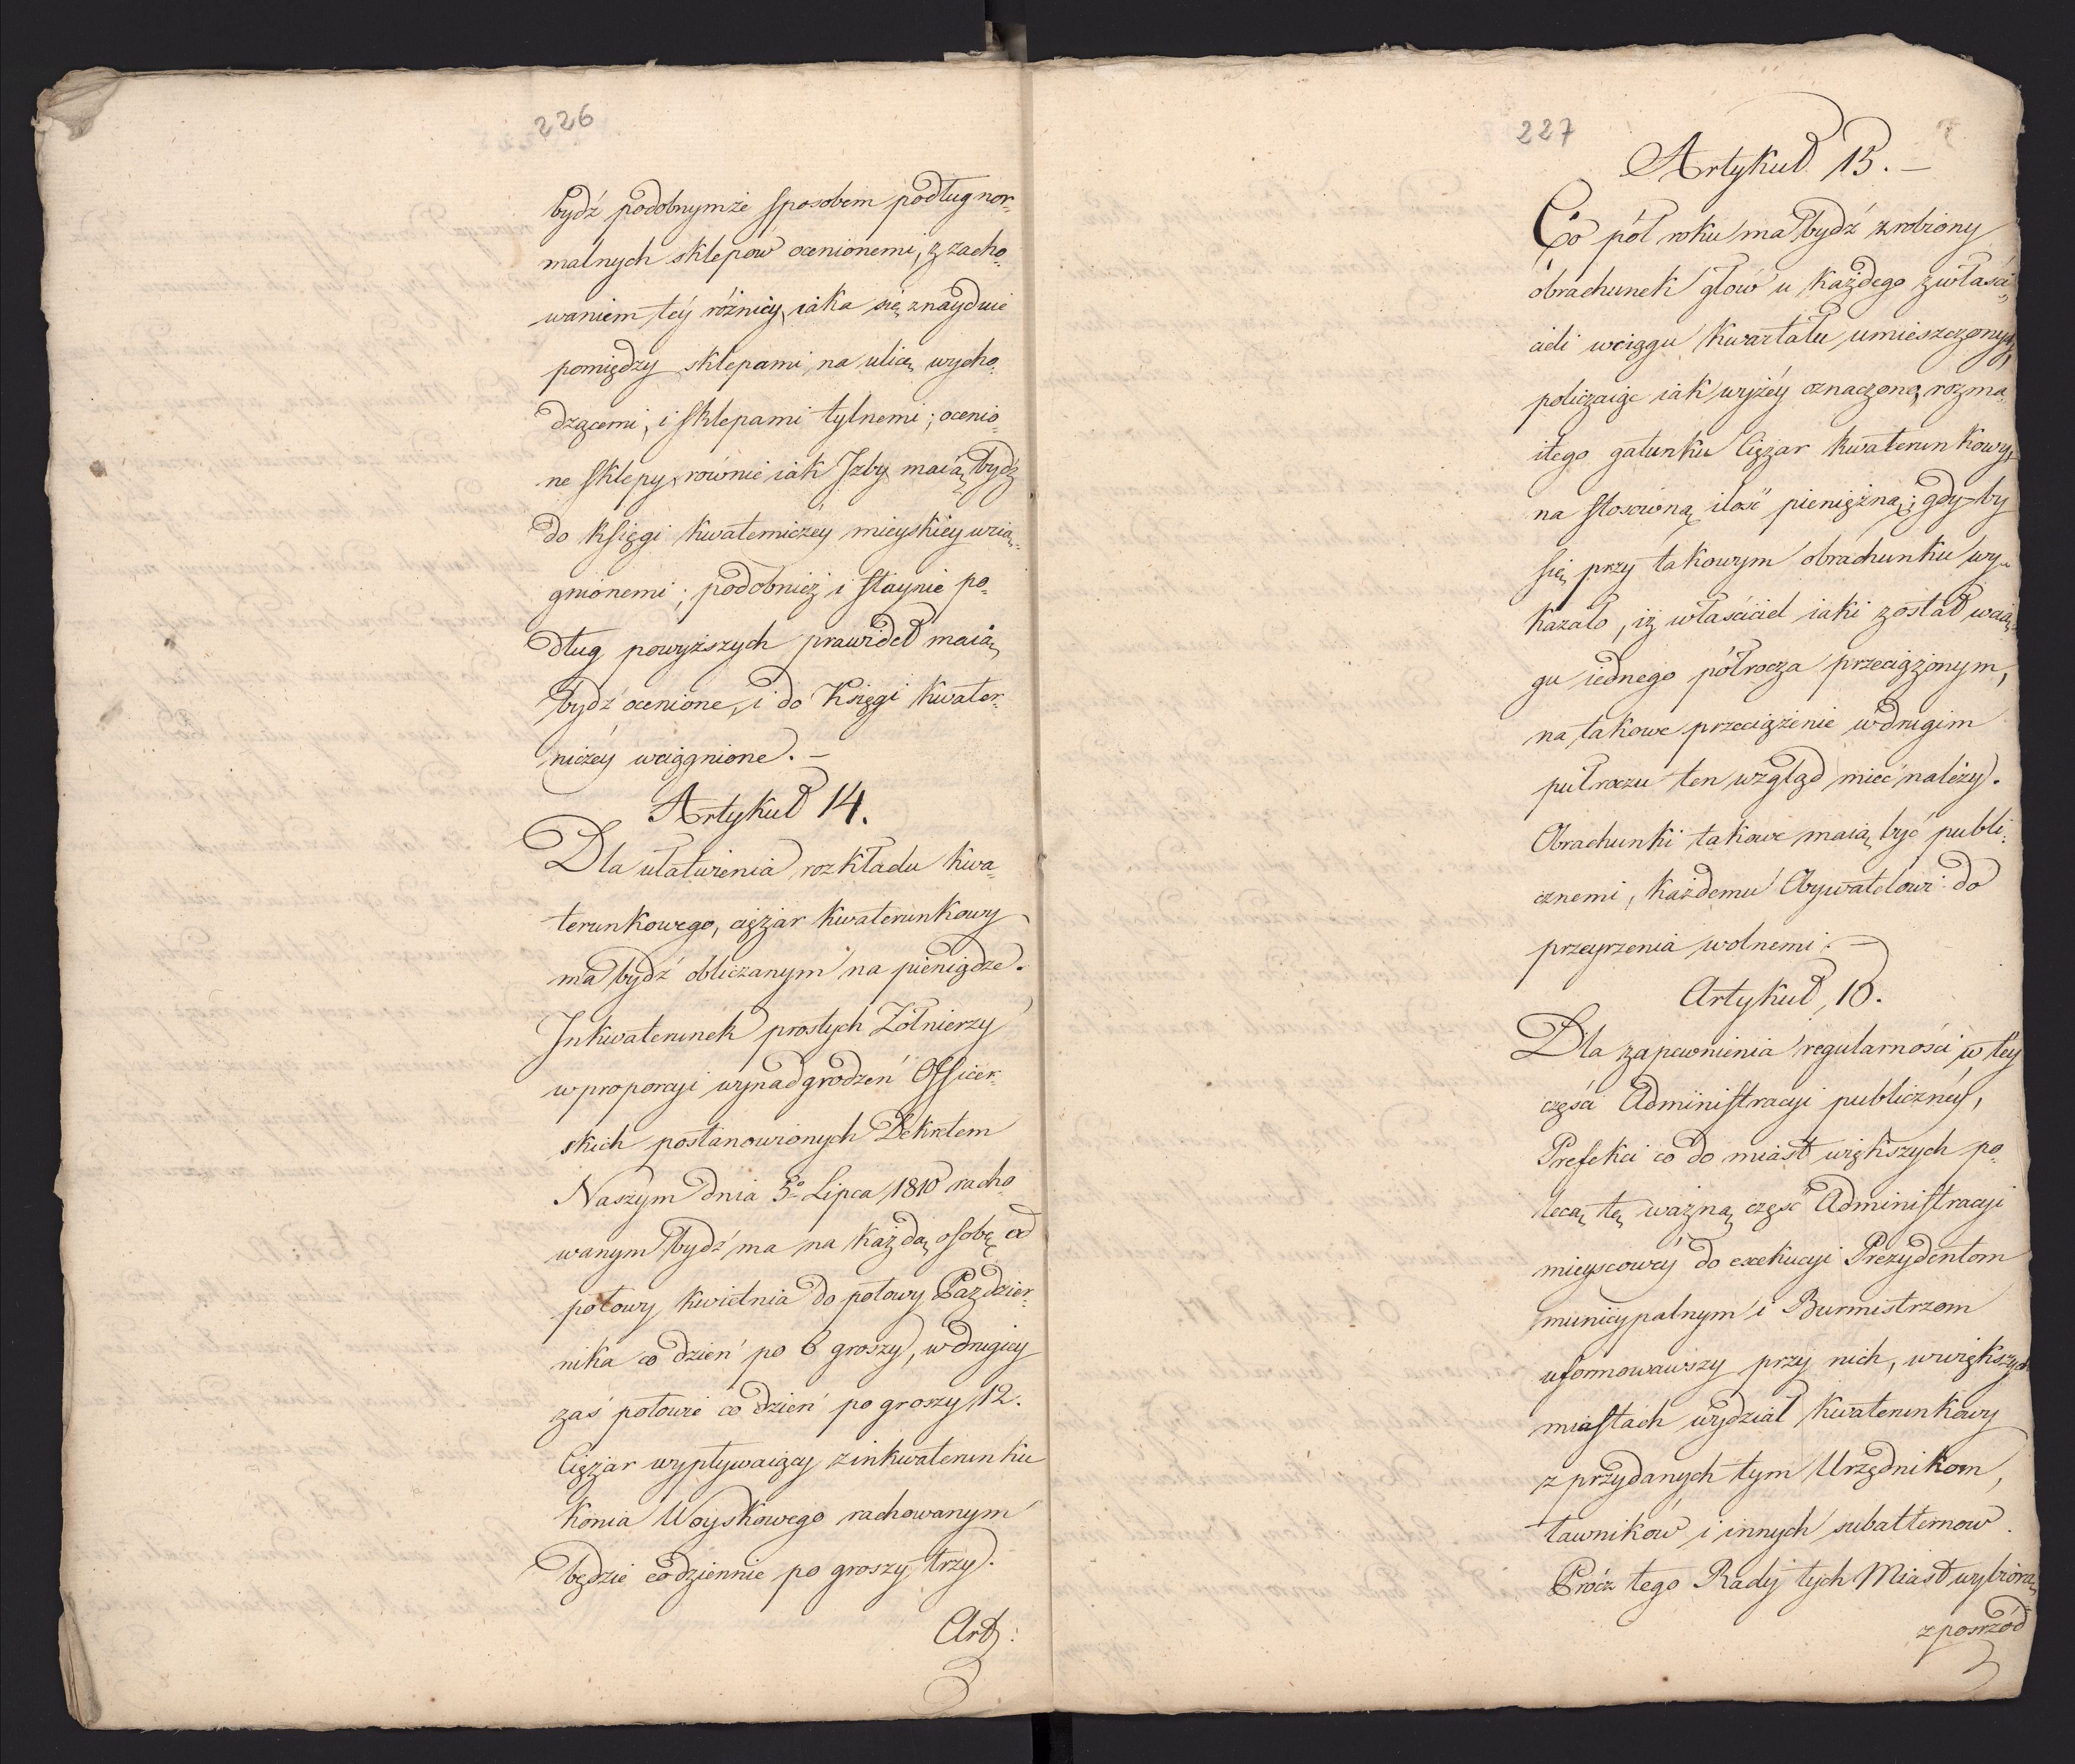 226
bydź podobnymże sposobem podług nor-
malnych sklepów ocenionemi, z zacho-
waniem tey różnicy, iaka się znayduie
pomiędzy sklepami na ulicę wycho-
dzącemi, i sklepami tylnemi; ocenio-
ne sklepy, równie iak Izby, maią bydź
do księgi kwaterniczéy mieyskiéy wcią-
gnionemi; podobnież i staynie po-
dług powyższych prawideł maią
bydź ocenione, i do Księgi Kwater-
niczéy wciągnione. —
Artykuł 14.
Dla ułatwienia rozkładu kwa-
terunkowego, ciężar kwaterunkowy
ma bydź obliczanym na pieniądze.
Inkwaterunek prostych Żołnierzy
w proporcyi wynadgrodzeń Officer-
skich postanowionych Dekretem
Naszym dnia 5º Lipca 1810 racho-
wanym bydź ma na każdą osobę od
połowy Kwietnia do połowy Paździer-
nika co dzień po 6 groszy, w drugiey
zaś połowie co dzień po groszy 12.
Ciężar wypływaiący z inkwaterunku
Konia Woyskowego rachowanym
będzie codziennie po groszy trzy.
Art:
227
Artykuł 15. —
Co pół roku ma bydź zrobiony
obrachunek głów u każdego z właści-
cieli w ciągu kwartału umieszczonych,
policzaiąc iak wyżéy oznaczono, rozma-
itego gatunku Ciężar kwaterunkowy,
na stosowną ilość pieniężną; gdy-by
się przy takowym obrachunku wy-
kazało, iż właściciel iaki został w cią-
gu iednego półrocza przeciążonym,
na takowe przeciążenie w drugim
pułroczu ten wzgląd mieć należy.
Obrachunki takowe maią być publi-
cznemi, każdemu Obywatelowi do
przeyrzenia wolnemi. —
Artykuł 16.
Dla zapewnienia regularności w tey
części Administracyi publicznéy,
Prefekci co do miast większych po-
lecą tę ważną część Administracyi
mieyscowéy do exekucyi Prezydentom
municypalnym i Burmistrzom
uformowawszy przy nich, w większych
miastach wydział kwaterunkowy
z przydanych tym Urzędnikom,
ławników i innych subalternow.
Prócz tego Rady tych Miast wybiorą
z posrzód